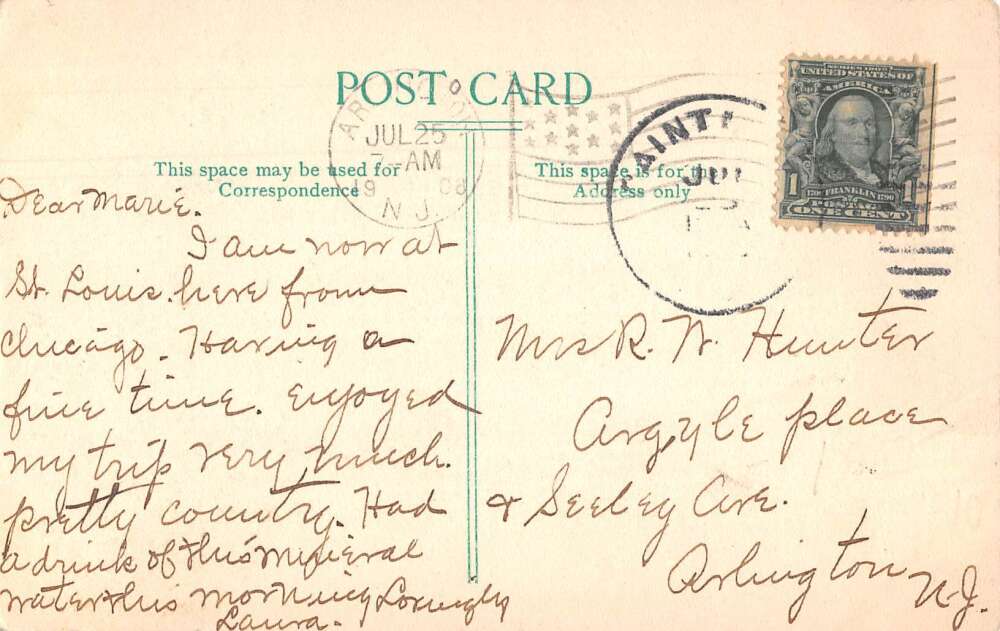 POST CARD
ARLINGTON
JUL 25
7-AM
1908
N.J.
SAINT
JUL
SERIES 1902
UNITED STATES OF
AMERICA
1 1790 FRANKLIN 1790 1
POSTAGE
ONE CENT
This space may be used for
Correspondence
This space is for the
Address only
Dear Marie.
I am now at
St. Louis. here from
Chicago. Having a
fine time. enjoyed
my trip very much.
pretty country. Had
a drink of this mineral
water this morning Lovingly
Laura.
Mrs R. W. Hunter
Argyle place
& Seeley Ave.
Arlington N.J.